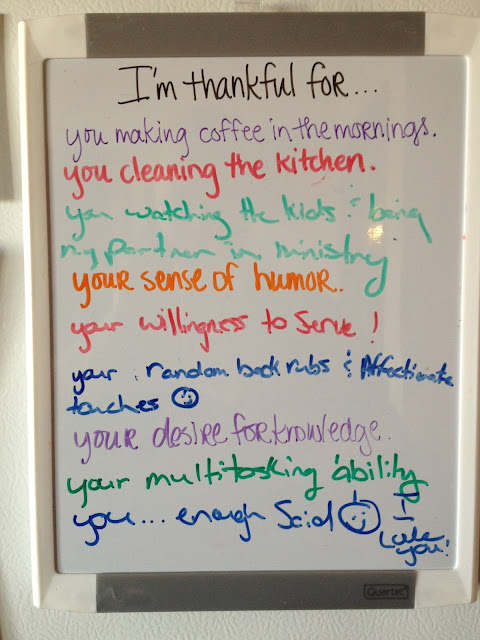 I'm thankful for...
you making coffee in the mornings.
you cleaning the kitchen.
you watching the kids & being
my partner in ministry
your sense of humor..
your willingness to serve!
your random back rubs & Affectionate
touches ☺
your desire for knowledge.
your multitasking ability
you... enough Said ☺
I
Love
you!
Quartet